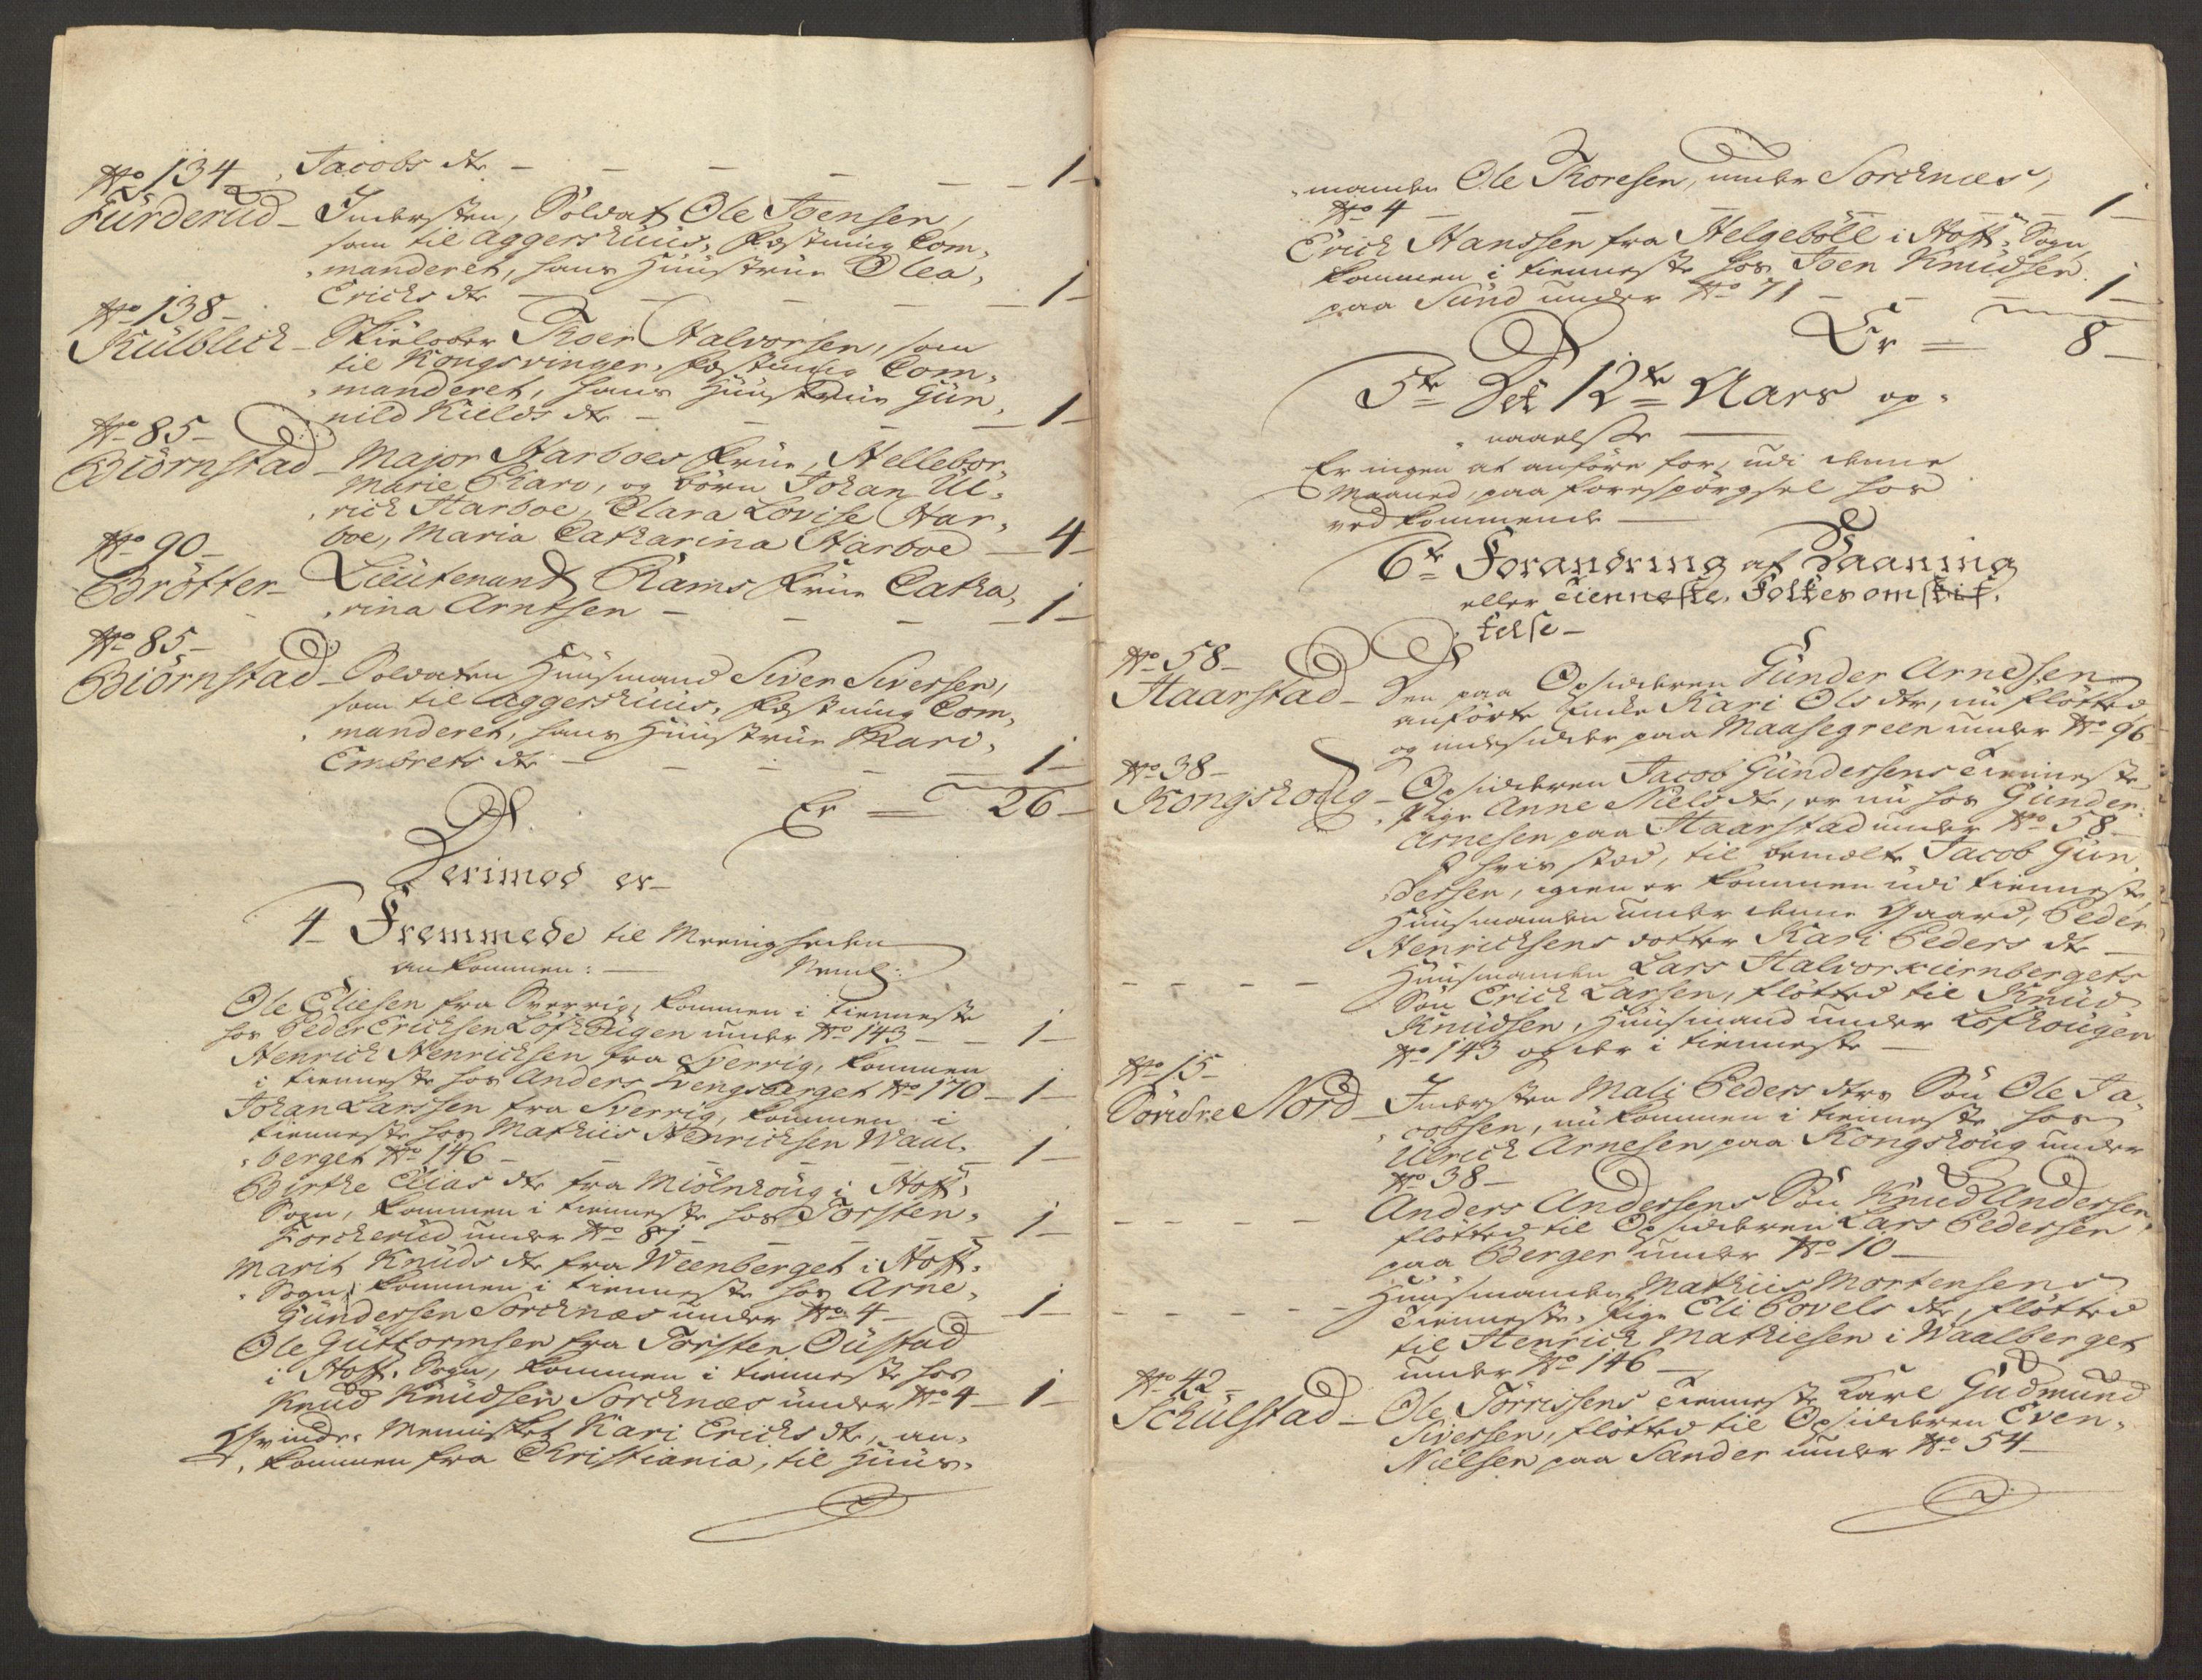 No 134 , Jacobs dtr - - - - - 1 -
Furderud - Indersten, Soldat Ole Joensen,
som til Aggershuus, Festning Com-
-manderet, hans Huustrue Olea,
Erichs dtr - - - - 1 -
No 138 -
Kulblich - Skielober Thoer Halvorsen, som
til Kongsvinger, Festning Com-
-manderet, hans Huustrue Gun-
nild Kields dtr - - - - 1 -
No 85 -
Biörnstad - Major Harboes Frue, Hellebor
Marie Charo, og börn Johan Ul-
rich Harboe, Clara Lovise Har-
boe, Maria Catharina Harboe - 4 -
No 90 -
Brötter - Lieutenant Rams Frue Catha-
-rina Arntsen - - - - 1 -
No 85 -
Biörnstad - Soldaten Huusmand Siver Siversen,
som til Aggershuus, Festning Com-
-manderet, hans Huustrue Mari,
Embrets dtr - - - - 1 -
Er = 26 -
Derimod er -
4 Fremmede til Meenigheden
ankommen: - Neml:
Ole Eliesen fra Sverrig, kommen i tienneste
hos Peder Erichsen Löfhougen under No 143 - - 1 -
Henrich Henrichsen fra Sverrig, kommen
i tienneste hos Anders Tvengsberget No 170 - 1 -
Johan Larssen fra Sverrig, kommen i
tienneste hos Mathiis Henrichsen Waal-
-berget No 146 - - - - 1 -
Birthe Elias dtr fra Miölnhoug i Hoff,
Sogn, kommen i tienneste hos Torsten,
Forcherud under No 81 - - - 1 -
Marit Knuds dtr fra Weenberget i Hoff,
Sogn, kommen i tienneste hos Arne,
Gundersen Sorchnæs under No 4 - - 1 -
Ole Guttormsen fra Torsten Oustad
i Hoff, Sogn, kommen i tienneste hos
Knud Knudsen Sorchnæs under No 4 - 1 -
Qvinde, Mennisket Kari Erichs dtr, an-
-kommen fra Christiania, til Huus-
-manden Ole Thoresen, under Sorchnæs,
No 4 - - - - 1 -
Erich Hanssen fra Helgeböll i Hoff, Sogn
kommen i tienneste hos Joen Knudsen
paa Sund under No 71 - - - 1 -
Er = 8 -
5te Det 12te Aars op-
-naaelse -
Er ingen at anföre for, udi denne
Maaned, paa forespörgsel hos
vedkommende -
6te Forandring af Vaaning
eller Tienneste, Folkes omskif-
telse -
No 58 -
Haarstad - Den paa Opsidderen Gunder Arnesen
anförte Enke Kari Ols dtr, nu flötted
og indsidder paa Maasegreen under No 96
No 38 -
Kongshoug - Opsidderen Jacob Gundersens Tienneste
-Pige Anne Niels dtr, er nu hos Gunder
Arnesen paa Haarstad under No 58 -
I hvis sted, til bemelte Jacob Gun
dersen, igien er kommen udi tienneste,
Huusmanden under denne Gaard, Peder
Henrichsens dotter Kari Peders dtr -
- - - - Huusmanden Lars Halvorkiernbergets
Sön Erich Larsen, flötted til Knud
Knudsen, Huusmand under Löfhougen
No 143 og der i tienneste -
No 15 -
Söndre Nord - Indersten Mali Peders dtrs Sön Ole Ja-
-cobsen, nu kommen i tienneste hos
Ulrich Arnesen paa Kongshoug under
No 38 -
- - - - Anders Andersens Sön Knud Andersen,
flötted til Opsidderen Lars Pedersen
paa Berger under No 10 -
- - - - - Huusmanden Mathiis Mortensens
Tienneste, Pige Eli Povels dtr, flötted
til Henrich Mathiesen i Waalberget
under No 146 -
No 42 -
Schulstad - Ole Törrissens Tienneste Karl Gudmund
Siversen, flötted til Opsidderen Even,
Nielsen paa Sander under No 54 -